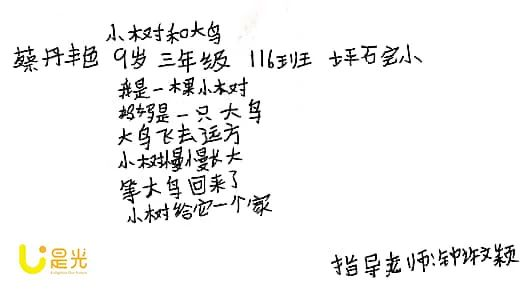 小树和大鸟
蔡丹艳 9岁 三年级 116班 坪石完小
我是一棵小树
妈妈是一只大鸟
大鸟飞去远方
小树慢慢长大
等大鸟回来了
小树给它一个家
是光
指导老师:钟文颖